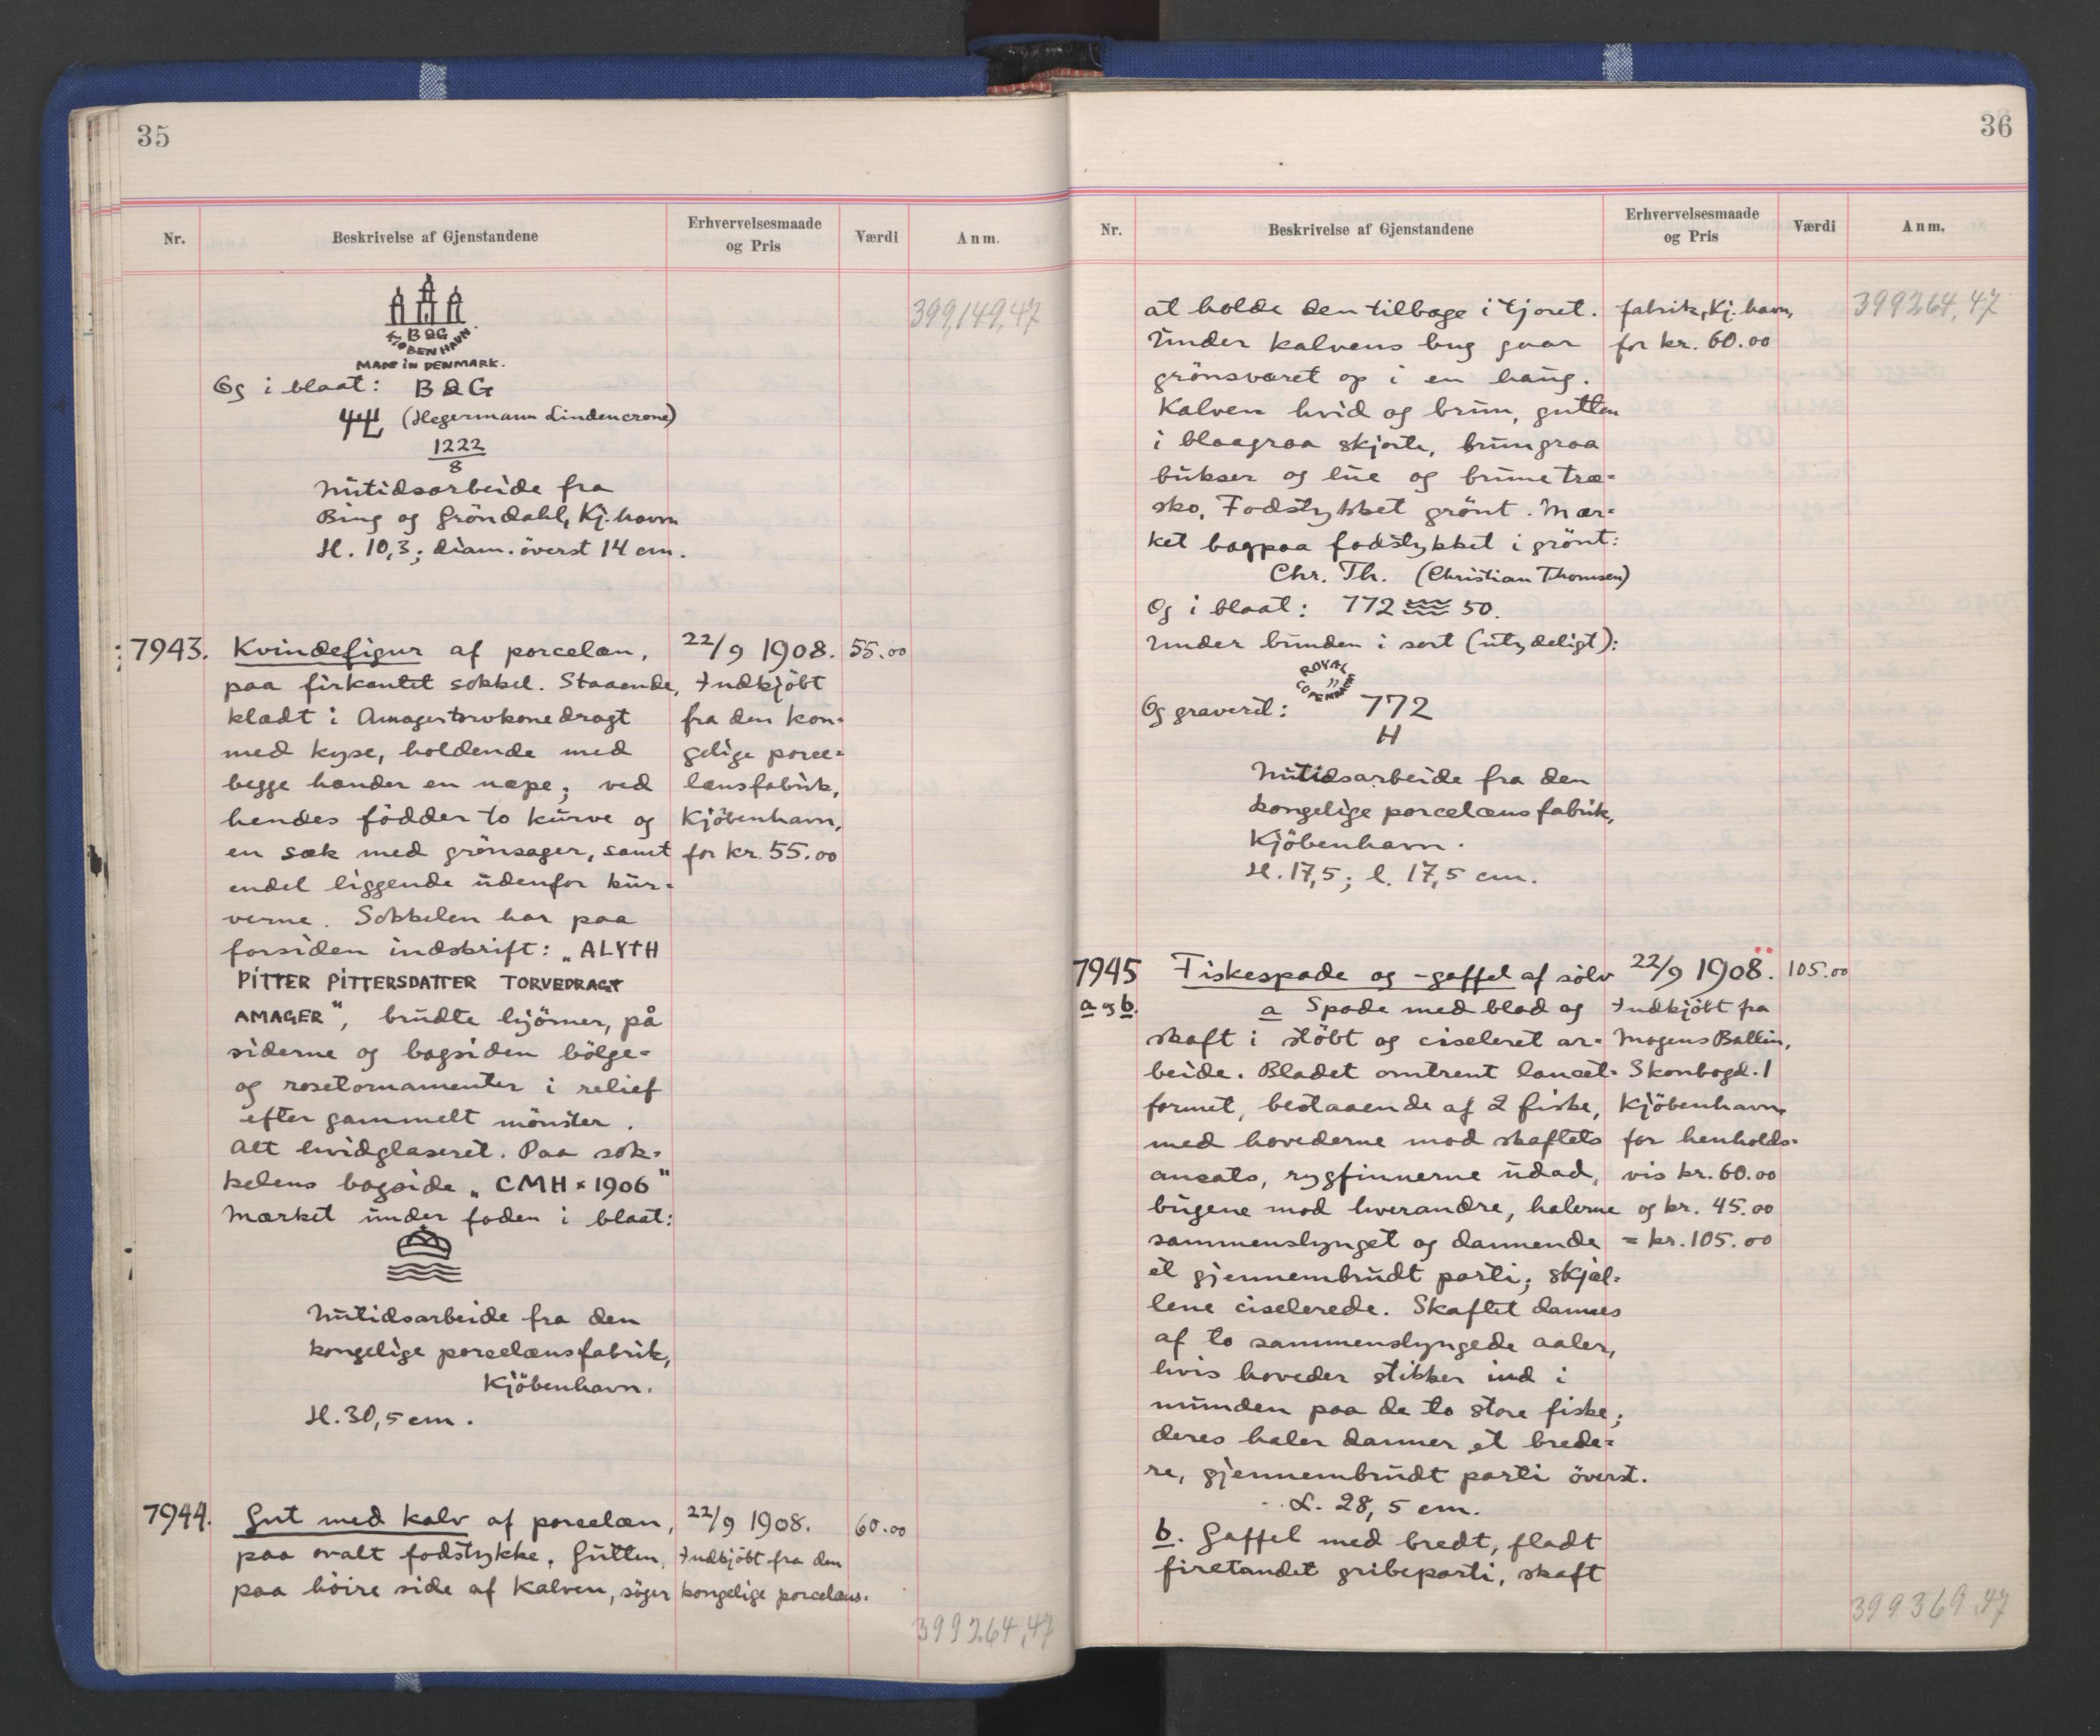 35
Nr.
Beskrivelse af Gjenstandene
Erhvervelsesmaade
og Pris
Værdi
Anm.
399,149,47
B&G
KJØBENHAVN.
MADE in DENMARK.
Og i blaat: B&G
(Hegermann Lindencrone)
1222
8
Nutidsarbeide fra
Bing og Gröndahl, Kj.havn
H. 10,3; diam. överst 14 cm.
7943. Kvindefigur af porcelæn,
paa firkantet sokkel. Staaende,
klædt i Amagertorvkonedragt
med kyse, holdende med
begge hænder en næpe; ved
hendes födder to kurve og
en sæk med grönsager, samt
endel liggende udenfor kur-
verne. Sokkelen har paa
forsiden indskrift: „ALYTH
PITTER PITTERSDATTER TORVEDRAGT
AMAGER", brudte hjörner, på
siderne og bagsiden bölge-
og rosetornamenter i relief
efter gammelt mönster.
Alt hvidglaseret. Paa sok-
kelens bagside „CMH × 1906"
Mærket under foden i blaat:
Nutidsarbeide fra den
kongelige porcelænsfabrik,
Kjöbenhavn.
H. 30,5 cm.
22/9 1908.
Indkjöbt
fra den kon-
gelige porce-
lænsfabrik,
Kjöbenhavn,
for kr. 55.00
55.00
7944. Gut med kalv af porcelæn,
paa ovalt fodstykke. Gutten,
paa höire side af kalven, söger
22/9 1908.
Indkjöbt fra den
kongelige porcelæns-
60.00
399264,47
36
Nr.
Beskrivelse af Gjenstandene
Erhvervelsesmaade
og Pris
Værdi
Anm.
399264,47
at holde den tilbage i tjoret.
Under kalvens bug gaar
grönsværet op i en haug.
Kalven hvid og brun, gutten
i blaagraa skjorte, brungraa
bukser og lue og brune træ-
sko. Fodstykket grönt. Mær-
ket bagpaa fodstykket i grönt:
Chr. Th. (Christian Thomsen)
Og i blaat: 772 50.
Under bunden i sort (utydeligt):
ROYAL
COPENHAGEN
Og graveret: 772
H
Nutidsarbeide fra den
kongelige porcelænsfabrik,
Kjöbenhavn.
H. 17,5; l. 17,5 cm.
fabrik, Kj.havn,
for kr. 60.00
7945
a og b.
Fiskespade og -gaffel af sölv
a Spade med blad og
skaft i stöbt og ciseleret ar-
beide. Bladet omtrent lancet-
formet, bestaaende af 2 fiske,
med hovederne mod skaftets
ansats, rygfinnerne udad,
bugene mod hverandre, halerne
sammenslynget og dannende
et gjennembrudt parti; skjæl-
lene ciselerede. Skaftet dannes
af to sammenslyngede aaler,
hvis hoveder stikker ind i
munden paa de to store fiske;
deres haler danner et brede-
re, gjennembrudt parti överst.
L. 28,5 cm.
b. Gaffel med bredt, fladt
firetandet gribeparti, skaft
22/9 1908.
Indkjöbt fra
Mogens Ballin,
Skonbogd. 1
Kjöbenhavn,
for henholds-
vis kr. 60.00
og kr. 45.00
= kr. 105.00
105.00
399369,47